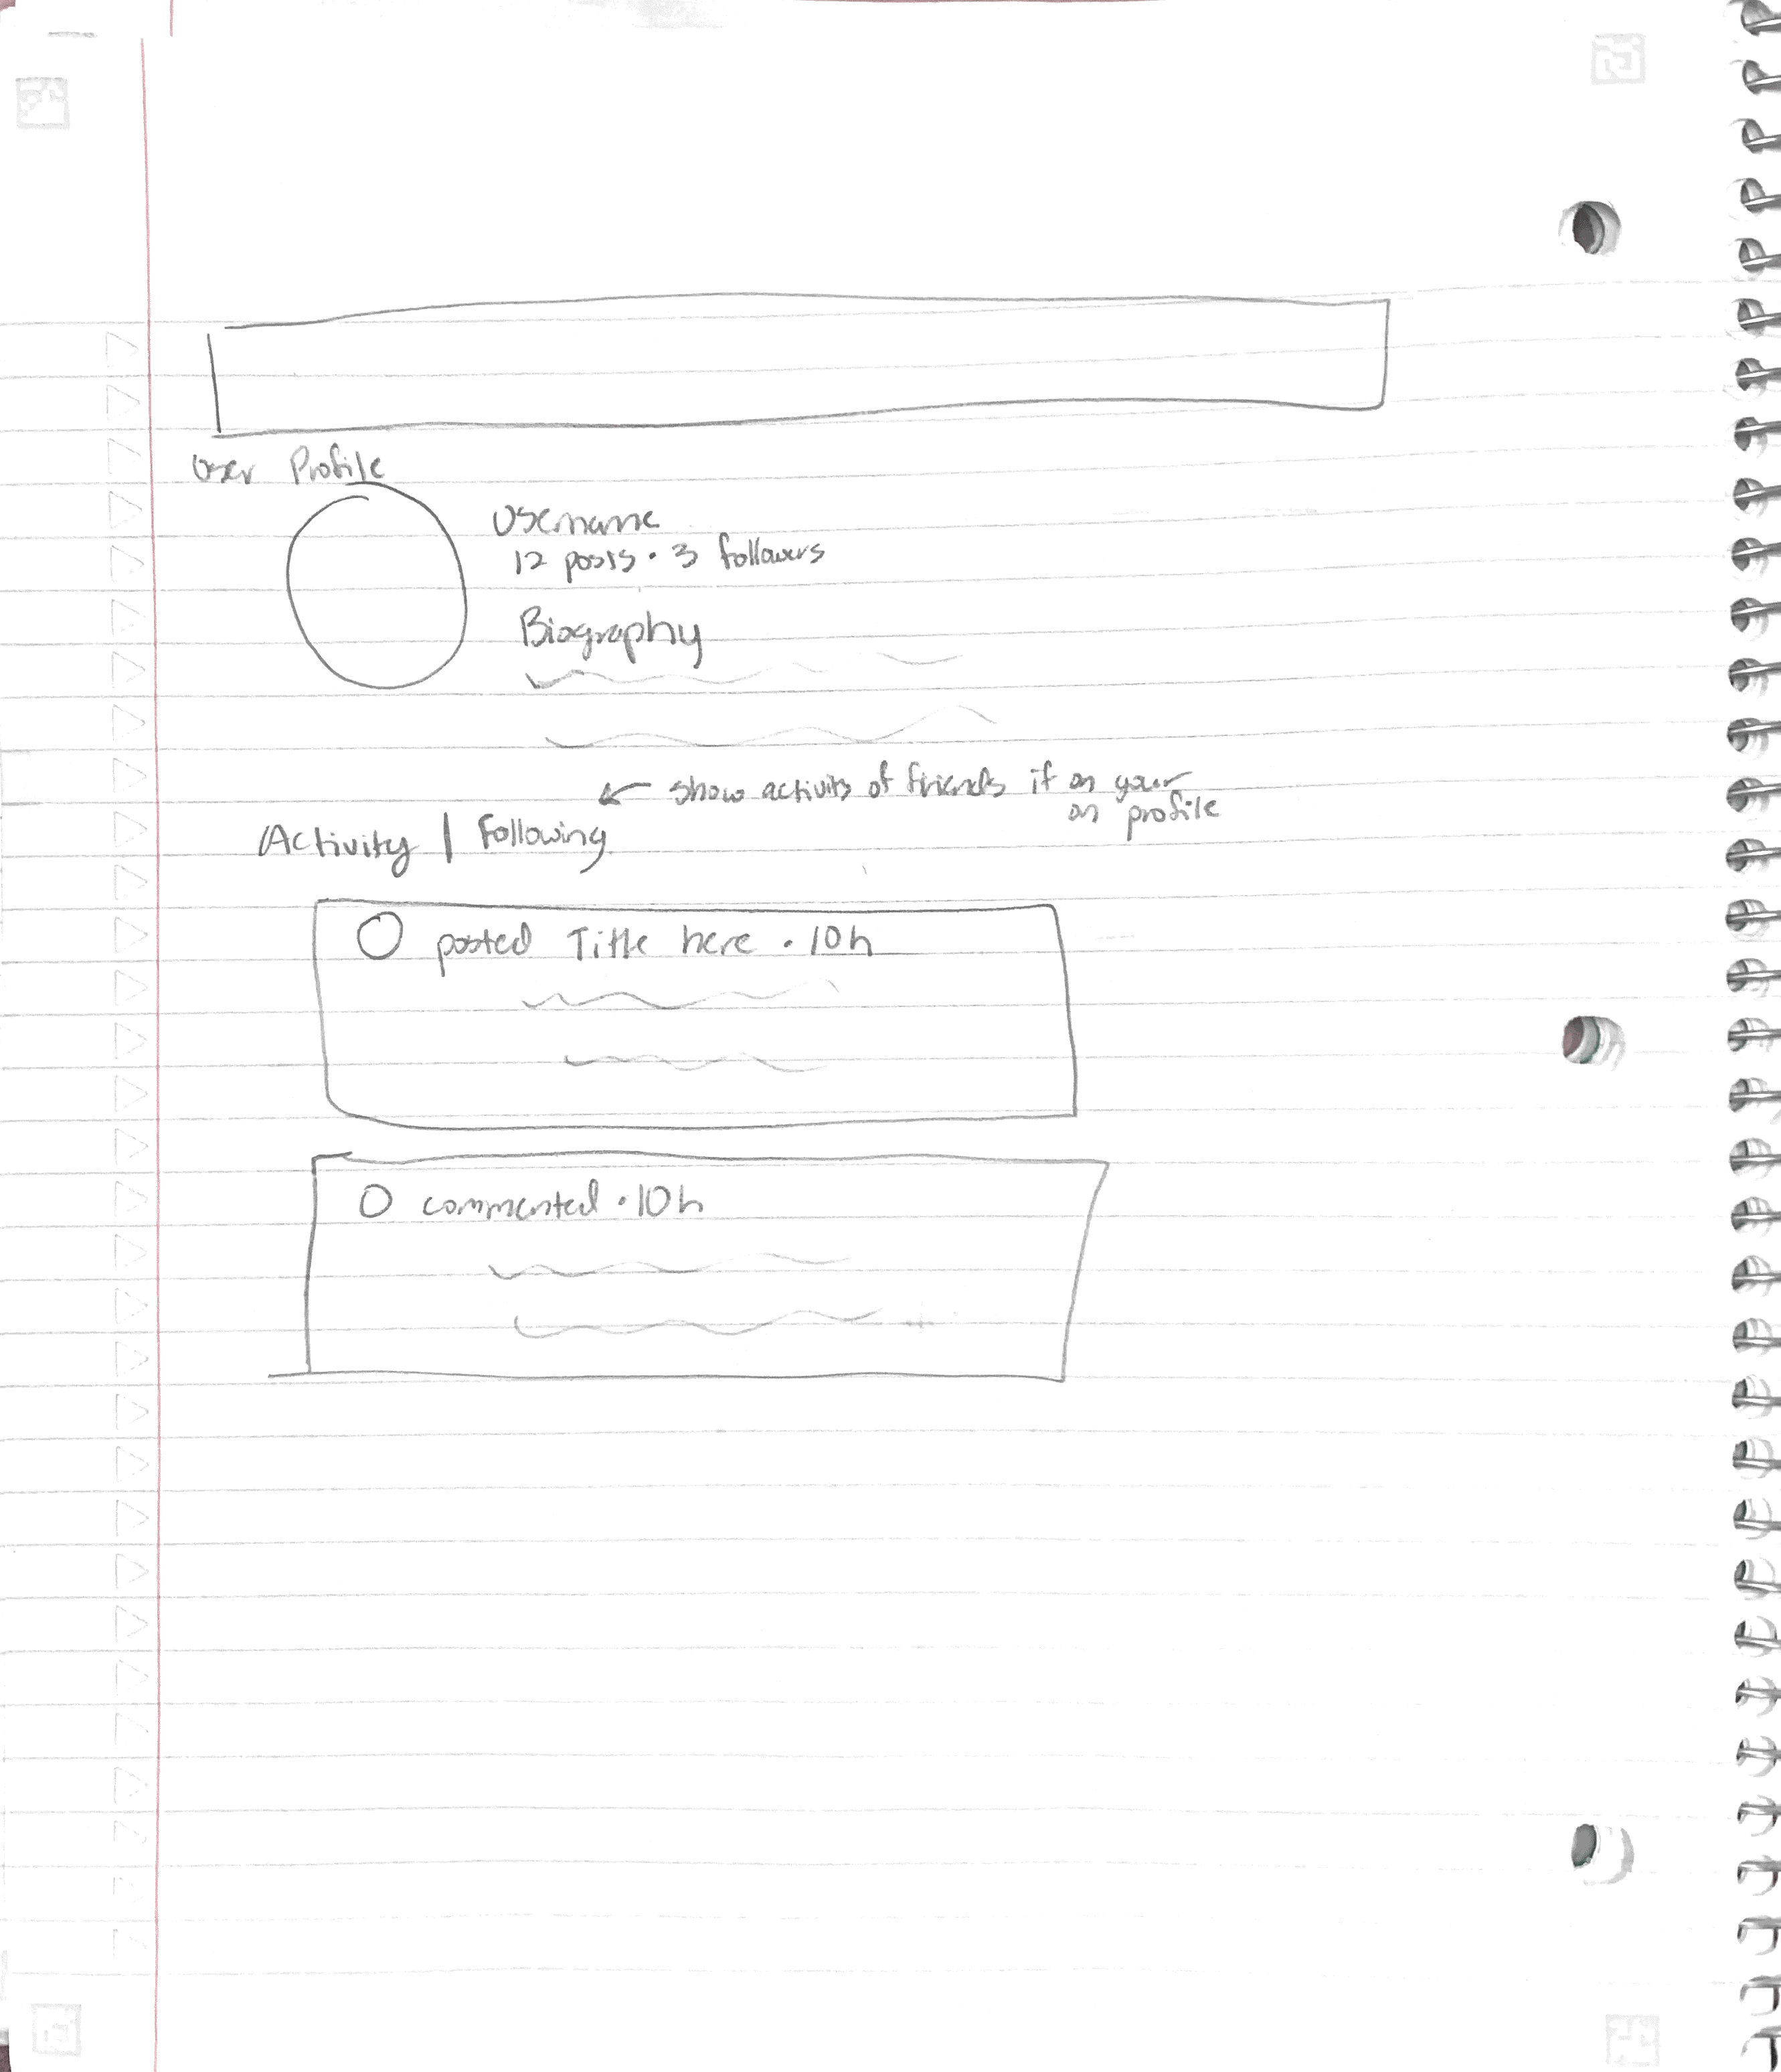 User Profile
Username
12 posts · 3 followers
Biography
← show activity of friends if on your
on profile
Activity | Following
posted Title here · 10h
commented · 10h